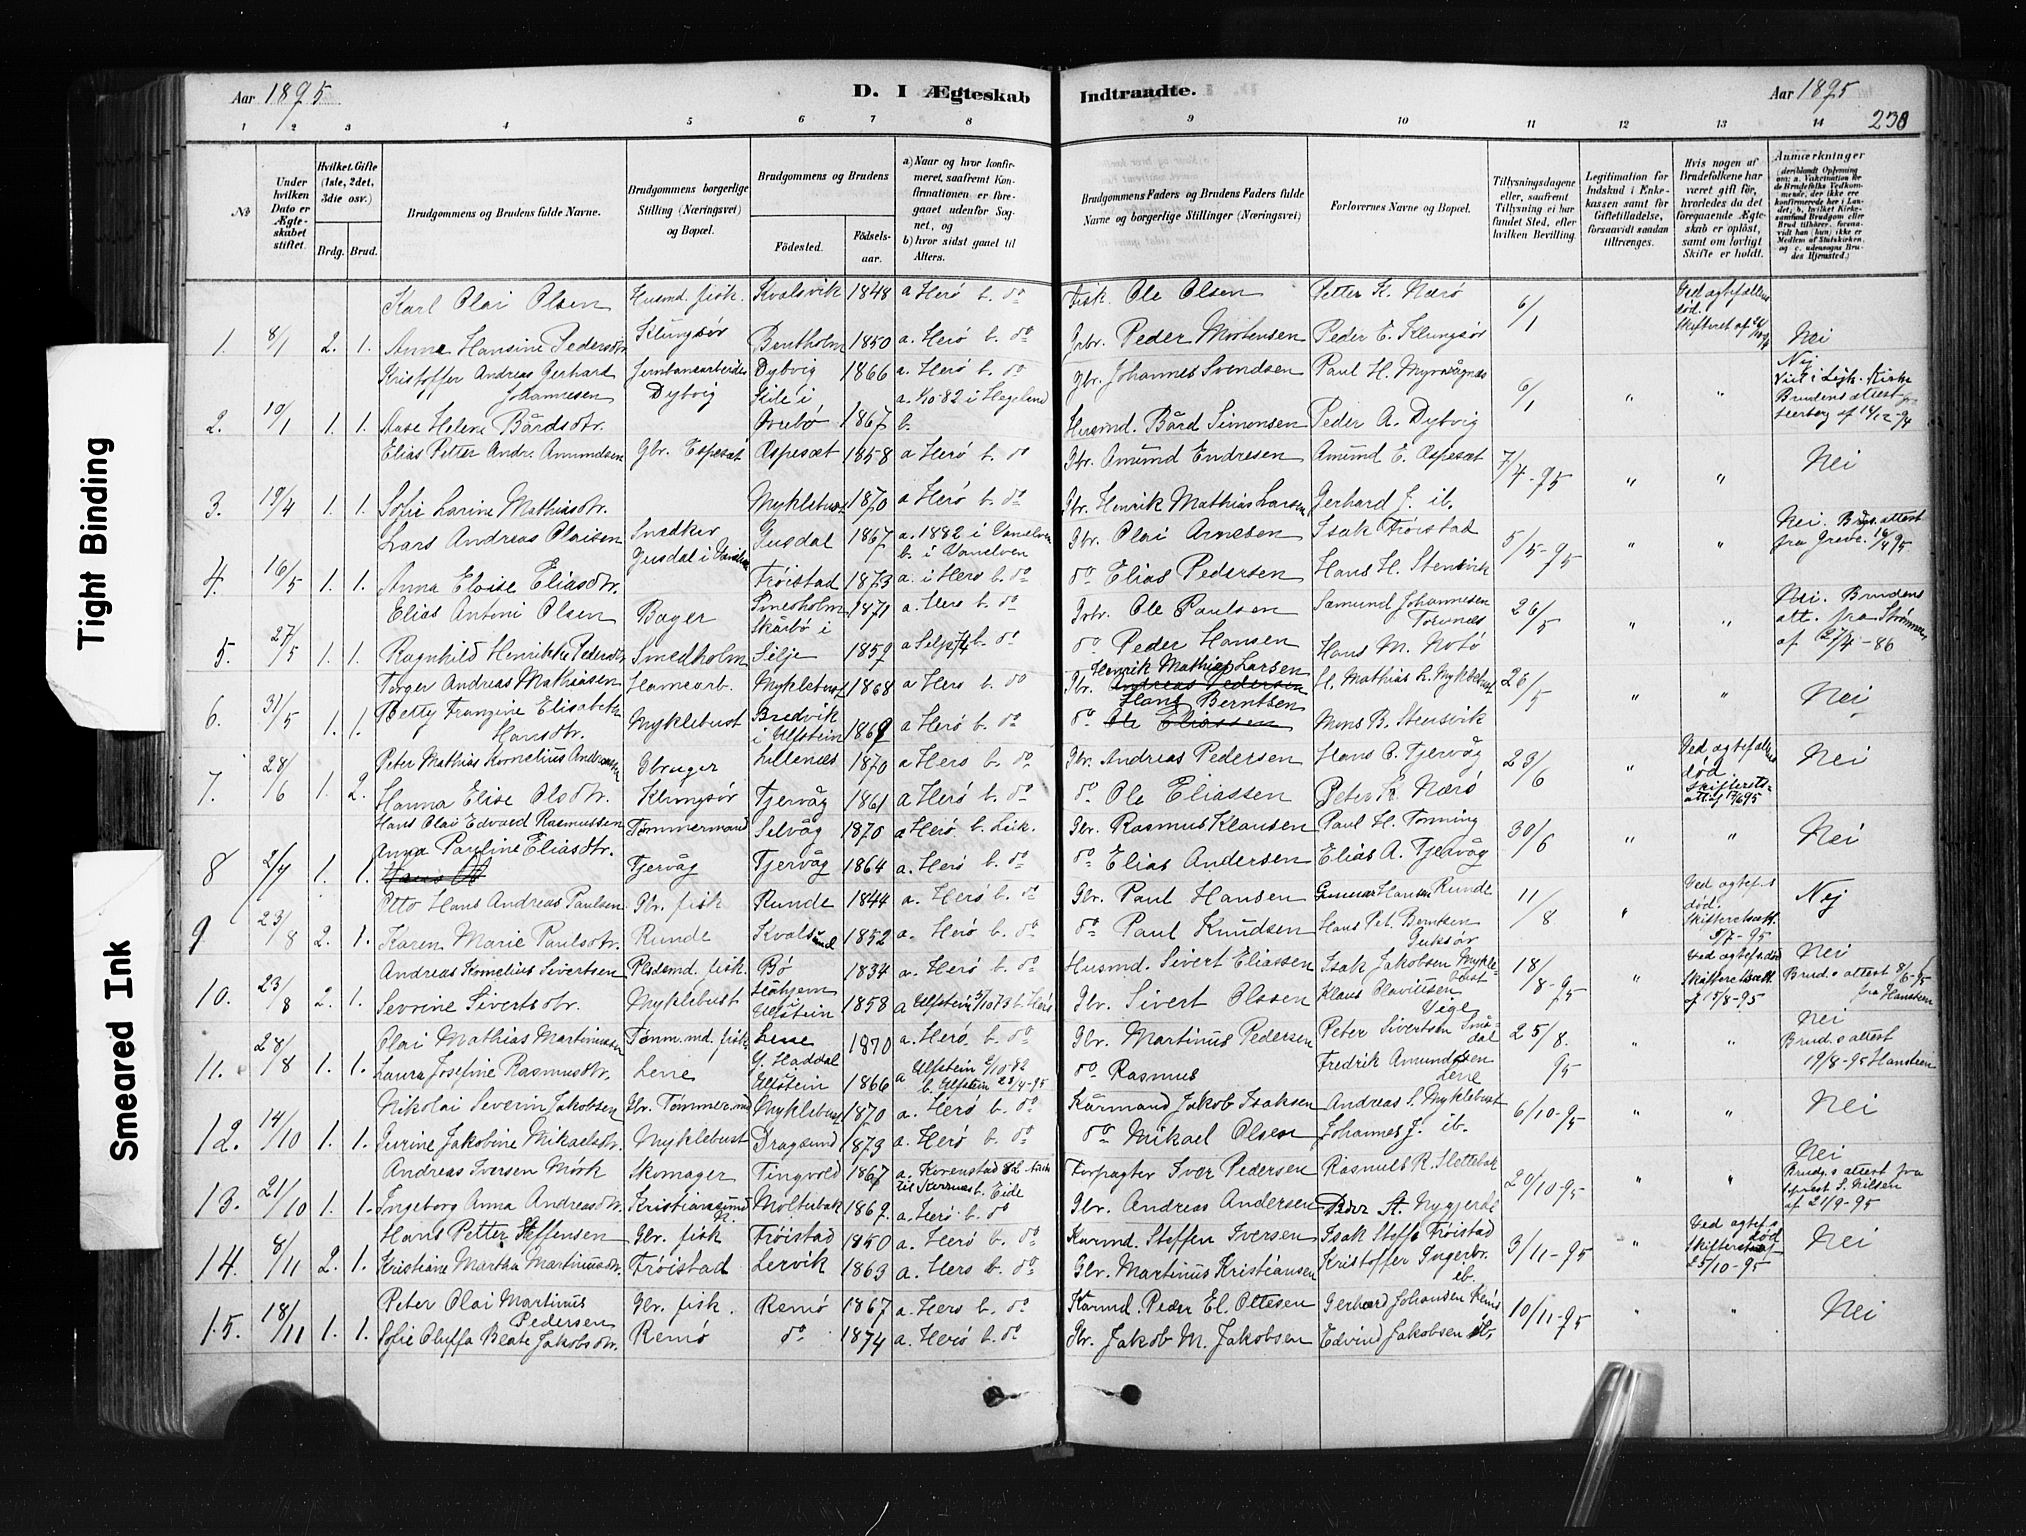 Aar 1895
D. I Ægteskab Indtraadte.
Aar 1895
230
1 2 3 4 5 6 7 8 9 10 11 12 13 14
№
Under hvilken Dato er Ægteskabet stiftet.
Hvilket Gifte (1ste, 2det, 3die osv.)
Brdg. Brud.
Brudgommens og Brudens fulde Navne.
Brudgommens borgerlige Stilling (Næringsvei) og Bopæl.
Brudgommens og Brudens
Fødested.
Fødselsaar.
a) Naar og hvor konfirmeret, saafremt Konfirmationen er foregaaet udenfor Sognet, og
b) hvor sidst gaaet til Alters.
Brudgommens Faders og Brudens Faders fulde Navne og borgerlige Stillinger (Næringsvei)
Forlovernes Navne og Bopæl.
Tillysningsdagene eller, saafremt Tillysning ei har fundet Sted, efter hvilken Bevilling.
Legitimation for Indskud i Enkekassen samt for Giftetilladelse, forsaavidt saadan tiltrænges.
Hvis nogen af Brudefolkene har været gift før, hvorledes da det foregaaende Ægteskab er opløst, samt om lovligt Skifte er holdt.
Anmærkninger
Karl Olai Olsen Husmd. fisk. Kvalsvik 1848 a Herø b. do Fisk. Ole Olsen Petter K. Nærø 6/1 Ved ægtefællens død.
1. 8/1 2. 1. Anne Hansine Pedersdtr Klungsør Bentholm 1850 a. Herø b. do Gbr. Peder Mortensen Peder E. Klungsør Nei
Kristoffer Andreas Gerhard Johannesen Jernbanearbeider Dybvig 1866 a. Herø b. do Gbr. Johannes Svendsen Paul H. Myrvågnæs 6/1 " " Nej
2. 10/1 1. 1. Aase Helene Bårdsdtr. Dybvig 1867 b. Husmd. Bård Simonsen Peder A. Dybvig
Elias Petter Andr. Amundsen Gbr. Espesæt Aspesæt 1858 a Herø b. do Gbr. Amund Endresen Amund E. Aspesæt 7/4-95 " " Nei
3. 19/4 1. 1. Sofie Larine Mathiasdtr. Myklebust 1870 a Herø b. do Gbr. Henrik Mathias Larsen Gerhard J. ib.
Lars Andreas Olaisen Snedker Gusdal 1867 a. 1882 i Vanelven b. i Vanelven Gbr. Olai Arnesen Isak Frøistad 5/5-95 " " Nei. Brudgs. attest fra Greve. 16/4 95
4. 16/5 1. 1. Anna Eloise Eliasdtr. Gusdal i Vanelven Frøistad 1873 a. i Herø b. do do Elias Pedersen Hans H. Stensvik
Elias Antoni Olsen Bager Smedholm 1871 a. Herø b. do Gbr. Ole Paulsen Samund Johannesen Torvnæs 26/5 " " Nei. Brudens att. fra Strømme af 27/4-86
5. 27/5 1. 1. Ragnhild Henrikke Pedersdtr Smedholm Skårbø i Silje 1859 a Selje 74 b. do do Peder Hansen Hans M. Notø
Torger Andreas Mathiasen Havnearb. Myklebust 1868 a Herø b. do Gbr. Henrik Mathias Larsen H. Mathias L. Myklebust 26/5 " " Nei
6. 31/5 1. 1. Petty Franzine Elisabeth Hansdtr. Myklebust Bredvik i Ulfstein 1869 a Herø b. do do Hans Berntsen Mons B. Stensvik
Peter Mathias Kornelius Andreassen Gbruger Lillenæs 1870 a Herø b. do Gbr. Andreas Pedersen Hans A. Tjervåg 23/6 " Ved ægtefællens død. Nei
7. 28/6 1. 2. Hanna Elise Olsdtr. Klungsør Tjervåg 1861 a Herø b. do do Ole Eliassen Peter K. Nærø
Hans Olai Edvard Rasmussen Tømmermand Selvåg 1870 a Herø b. Leik. Gbr. Rasmus Klausen Paul H. Tønning 30/6 " " Nei
8 2/7 1. 1. Anna Pauline Eliasdtr. Tjervåg Tjervåg 1864 a. Herø b. do do Elias Andersen Elias A. Tjervåg
Otto Hans Andreas Paulsen Gbr. fisk Runde 1844 a. Herø b. do Gbr. Paul Hansen Gunnar Hansen Runde 11/8 " Ved ægtef.s død. Nej
9 23/8 2. 1. Karen Marie Paulsdtr. Runde Kvalsund 1852 a. Herø b. do do Paul Knudsen Hans Pet. Berntsen Goksør
Andreas Kornelius Sivertsen Pladsmd. fisk. Bø 1834 a. Herø b. do Husmd. Sivert Eliassen Isak Jakobsen Myklebust 18/8-95 " Ved ægtefs død Nei
10. 23/8 2. 1. Severine Sivertsdtr. Myklebust Ulfstein 1858 a Ulfstein 5/10 73 b. Herø Gbr. Sivert Olssen Klaus Olaviusen Vige Bruds attest 8/6-95 fra Hanstein
Olai Mathias Martinussen Tømm.md. fisk Lene 1870 a. Herø b. do Gbr. Martinus Pedersen Peter Sivertsen Smådal 25/8. 95 " " Nei
11. 28/8 1. 1. Laura Josefine Rasmusdtr. Lene Y. Haddal Ulfstein 1866 a Ulfstein 1/10-82 b. Ulfstein 28/4-95 do Rasmus Fredrik Amundsen Lene Bruds attest 19/8-95 Hanstein
Nikolai Severin Jakobsen Gbr. Tømmermd Myklebust 1870 a. Herø b. do Kårmand Jakob Isaksen Andreas S. Myklebust 6/10-95 " " Nei
12. 14/10 1. 1. Gurine Jakobine Mikaelsdtr. Myklebust Dragsund 1873 a. Herø b. do do Mikael Olsen Johannes J. ib.
Andreas Iversen Mörk Skomager Tingvold 1867 a. Kvrenstad 82 Forpagter Iver Pedersen Rasmus R. Slettebak 20/10-95 " " Nei
13. 21/10 1. 1. Ingeborg Anna Andreasdtr. Kristiansund N. Moltubak 1869. a. Herø b. do Gbr. Andreas Andersen Peder A. Nygjerde Bruds attest fra Sprest S. Nilsen af 21/9-95
Hans Petter Steffensen Gbr. fisk Frøistad 1850 a. Herø b. do Kaarmd. Steffen Iversen Isak Steffs. Frøistad 3/11-95 " Ved ægtef.s død Nei
14. 8/11 2. 1. Kristiane Martha Martinusdtr. Frøistad Lervik 1863 a. Herø b. do Gbr. Martinus Kristiansen Kristoffer Ingebr. ib. 25/10-95
Peter Olai Martinus Pedersen Gbr. fisk. Remø 1867 a. Herø b. do Kårmd. Peder El. Ottesen Gerhard Johansen Remø 10/11-95 " " Nei
15. 18/11 1. 1. Sofie Oluffa Beate Jakobsdtr. Remø do 1874 a. Herø b. do Gbr. Jakob M. Jakobsen Edvind Jakobsen ib.
Tight Binding
Smeared Ink